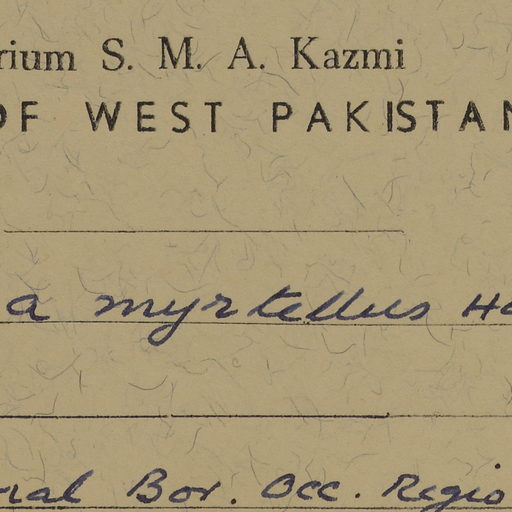 rium S. M. A. Kazmi
OF WEST PAKISTAN
a myrtellus Ho
ral Bor. Occ. Regio